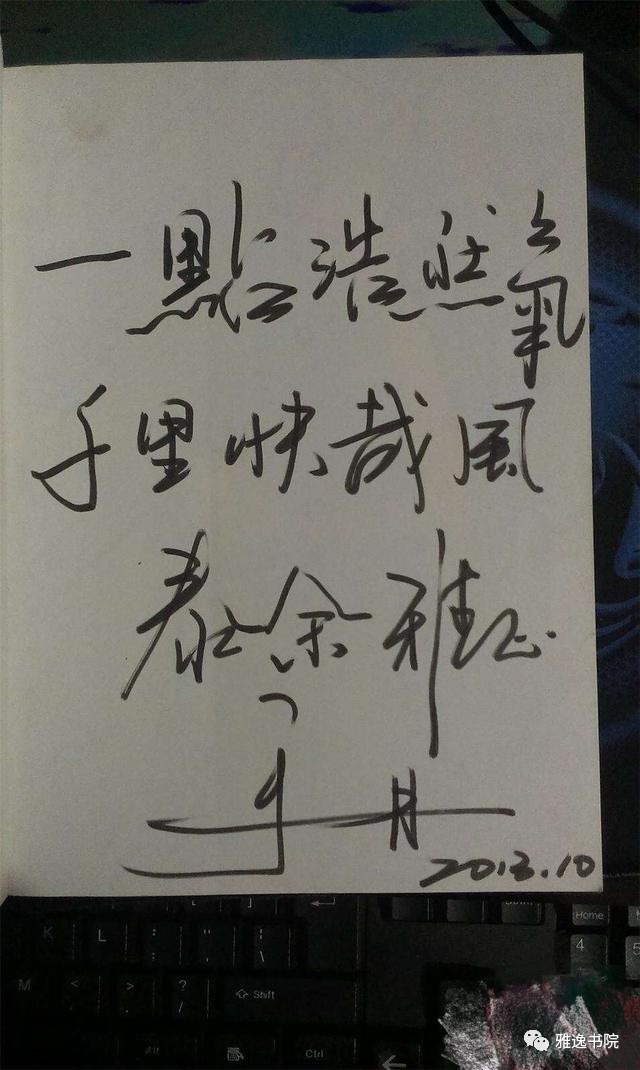 一點浩然氣
千里快哉風
余雅正
于丹
2013.10
K L : ; " ' | \
Home
4 5
M < > ? / Shift
Alt Ctrl
雅逸书院